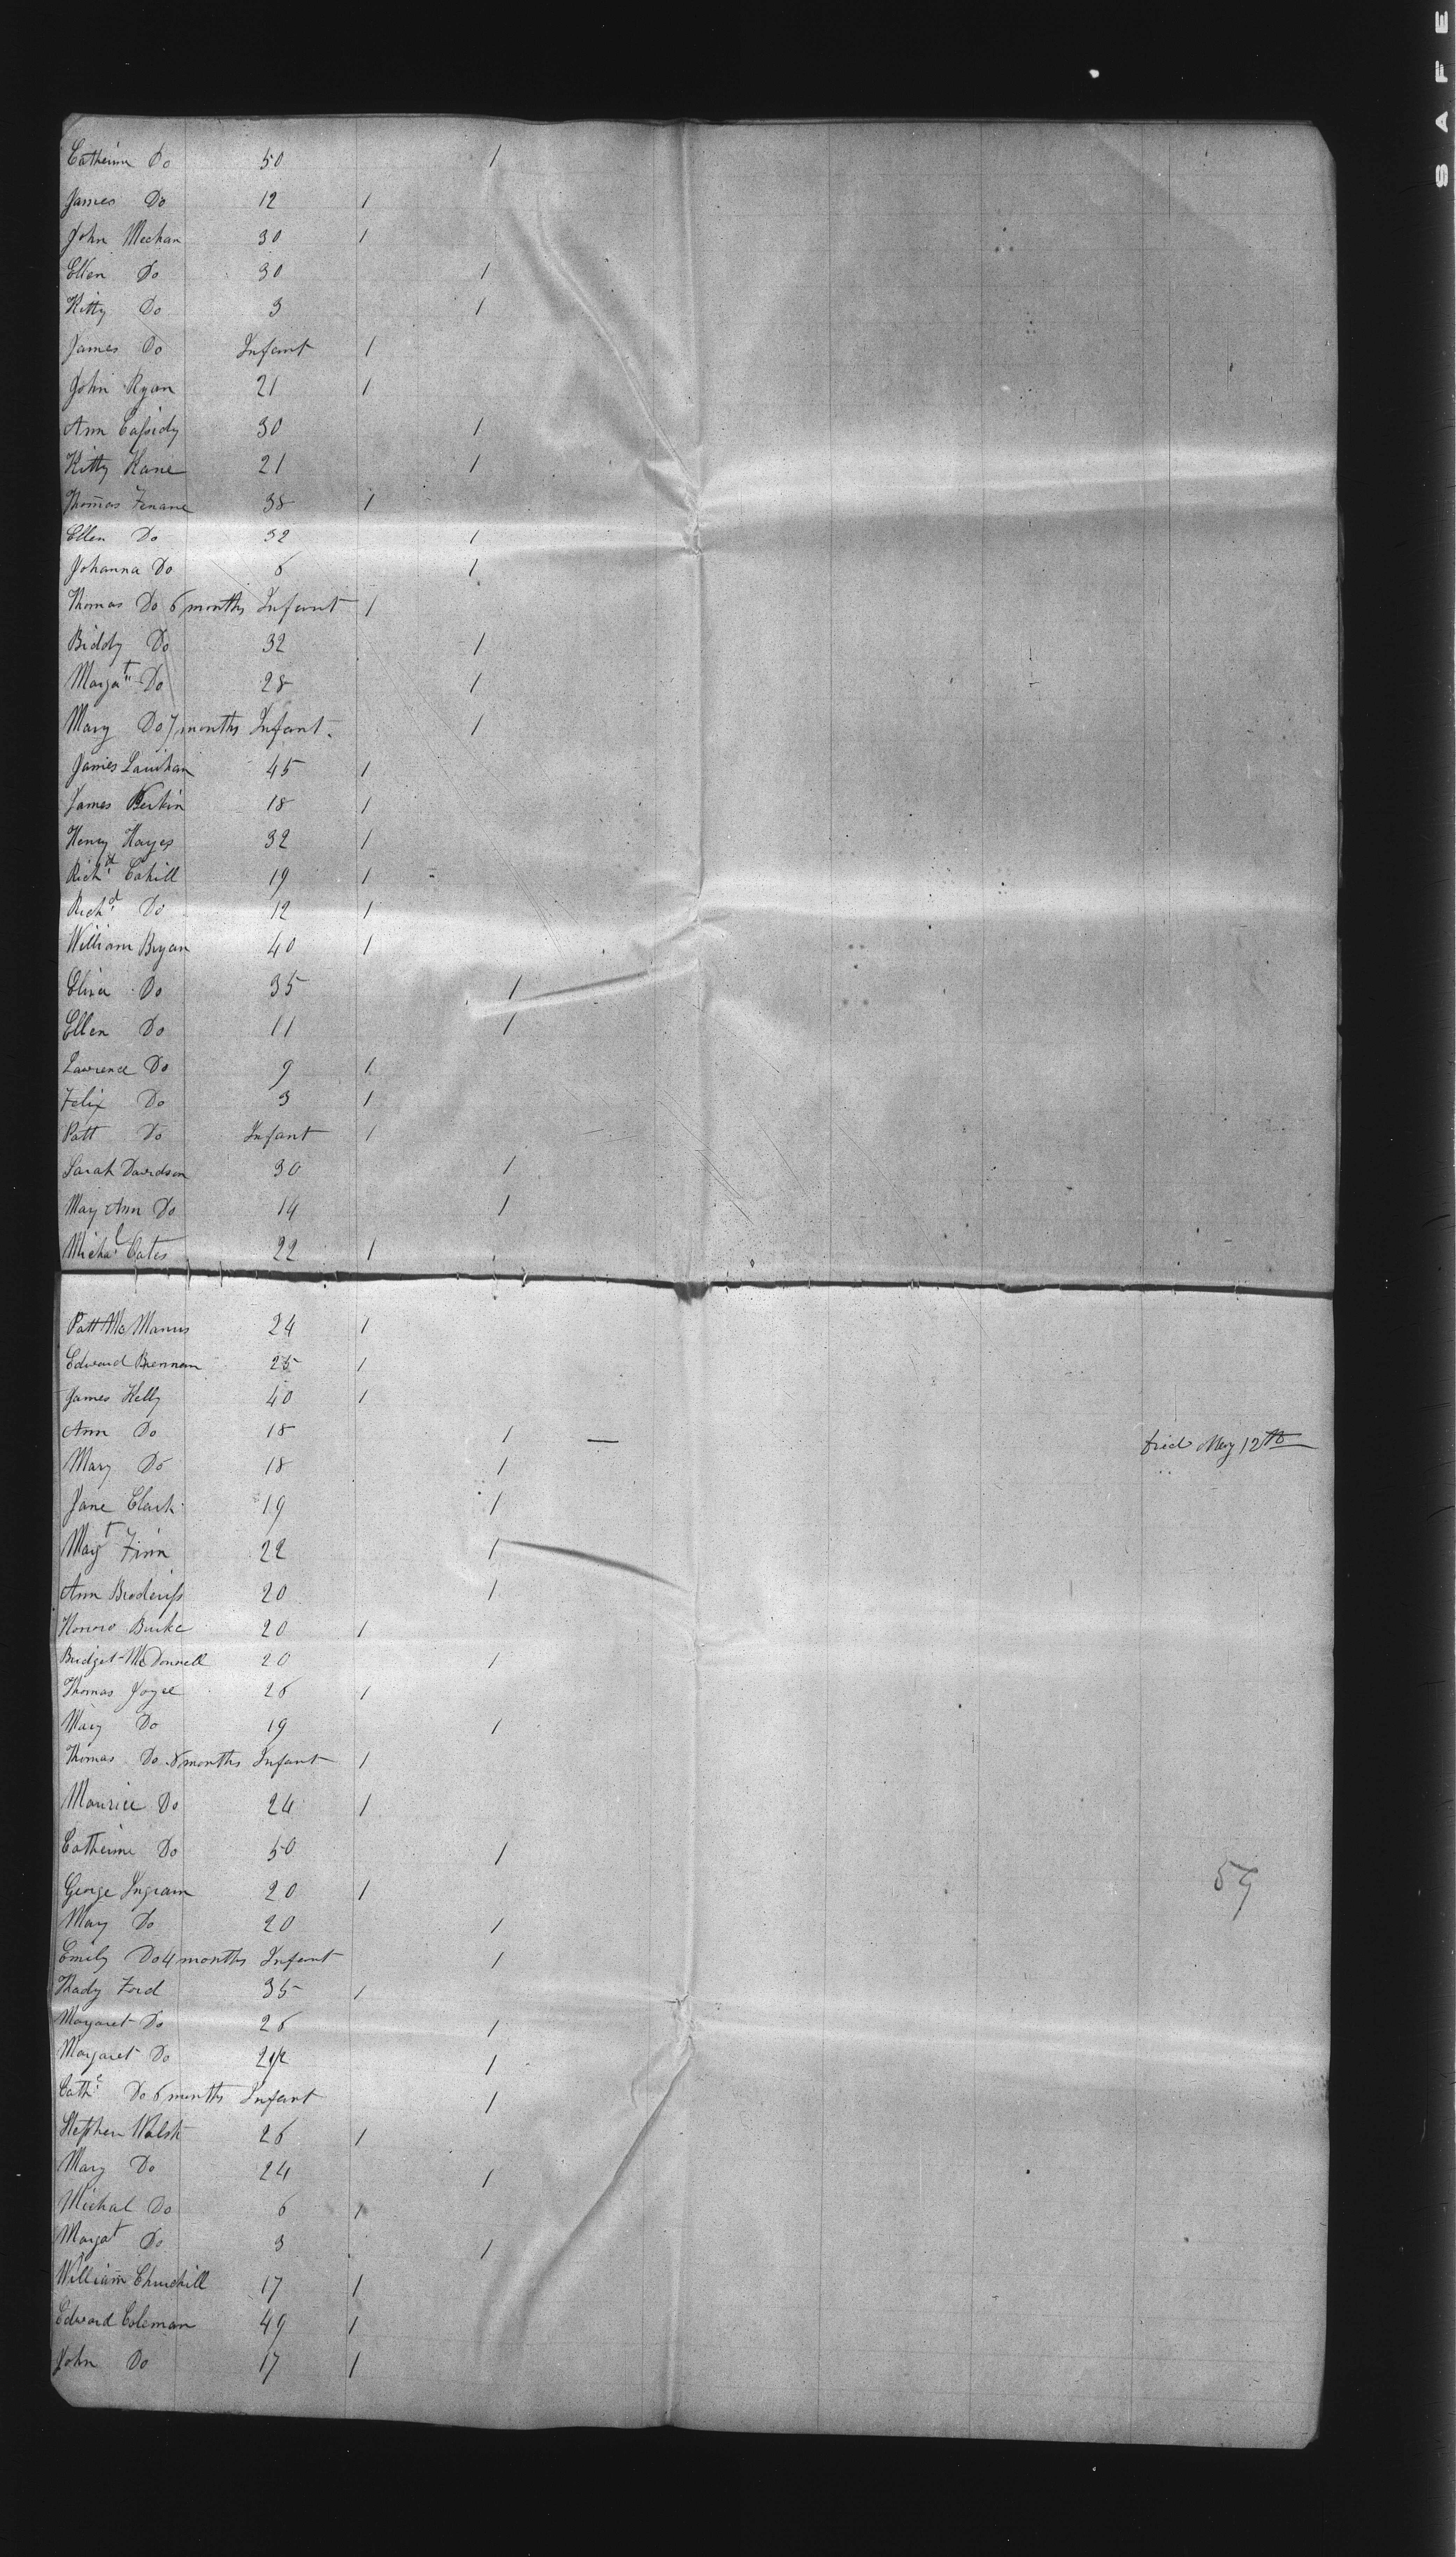 Catherine Do 50 1
James Do 12 1
John Meehan 30 1
Ellen Do 30 1
Kitty Do 3 1
James Do Infant 1
John Ryan 21 1
Ann Cassidy 30 1
Kitty Kane 21 1
Thomas Finane 38 1
Ellen Do 32 1
Johanna Do 6 1
Thomas Do 6 months Infant 1
Biddy Do 32 1
Margat Do 28 1
Mary Do 7 months Infant 1
James 45 1
James 18 1
Henry Hayes 32 1
Richd Cahill 19 1
Richd Do 12 1
William Bryan 40 1
Eliza Do 35 1
Ellen Do 11 1
Lawrence Do 9 1
Felix Do 3 1
Patt Do Infant 1
Sarah Davidson 30 1
May Ann Do 14 1
Michal Cates 22 1
Patt McManus 24 1
Edward Brennan 25 1
James Kelly 40 1
Ann Do 18 1 — died May 12th
Mary Do 18 1
Jane Clark 19 1
Margt Finn 22 1
Ann 20 1
Honoro Burke 20 1
Bridget McDonnell 20 1
Thomas Joyce 26 1
Mary Do 19 1
Thomas Do 6 months Infant 1
Maurice Do 24 1
Catherine Do 50 1
George Ingram 20 1
59
Mary Do 20 1
Emily Do 4 months Infant 1
Thady Ford 35 1
Margaret Do 26 1
Margaret Do 2 1/2 1
Cathe Do 6 months Infant 1
Stephen Walsh 26 1
Mary Do 24 1
Michal Do 6 1
Margat Do 3 1
William Churchill 17 1
Edward Coleman 49 1
John Do 17 1
SAFE